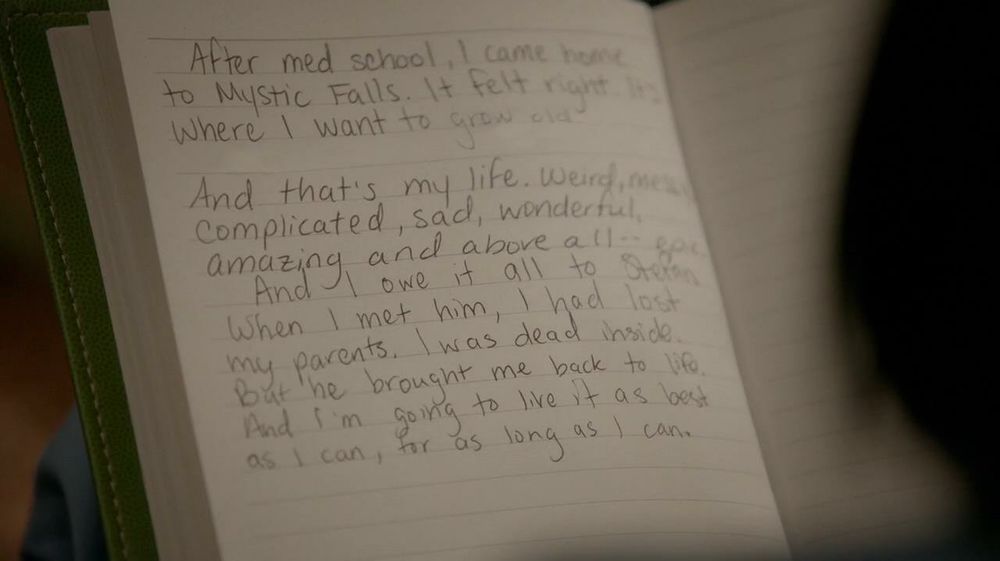 After med school, I came home
to Mystic Falls. It felt right. It's
where I want to grow old
And that's my life. Weird, messy,
complicated, sad, wonderful,
amazing and above all-- epic.
And I owe it all to Stefan
When I met him, I had lost
my parents. I was dead inside.
But he brought me back to life.
And I'm going to live it as best
as I can, for as long as I can.